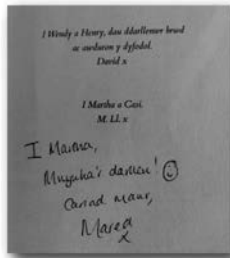 I Wendy a Henry, dau ddarllenwr brwd
ac awduron y dyfodol.
David x
I Martha a Casi.
M. Ll. x
I Martha,
Mwynha'r darllen!
Cariad mawr,
Mared
x